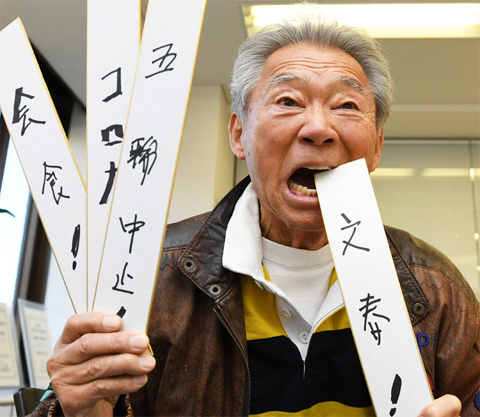 文春!
五輪中止!
コロナ
会食!